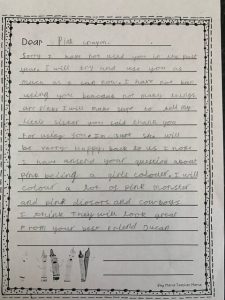 Dear Pink crayon.
Sorry I have not used you in the past
year. I will try and use you as
much as I can now. I have not ben
using you because not many things
are pink. I will make sure to tell my
little sister you said thank you
for using you. I'm sure she will
be verry happy back to us. I hope
I have ansend your question about
pink being a girls colouer. I will
colour a lot of pink monster
and pink diosors and cowboys
I think they will look great
From your best friend Ducan